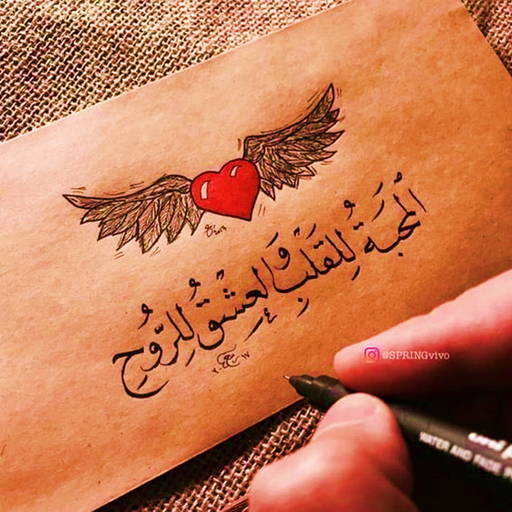 المُحَبَةُ لِلقَلبِ وَالعِشقُ لِلرّوُحِ
@SPRINGvivo
uni
WATER AND FADE P